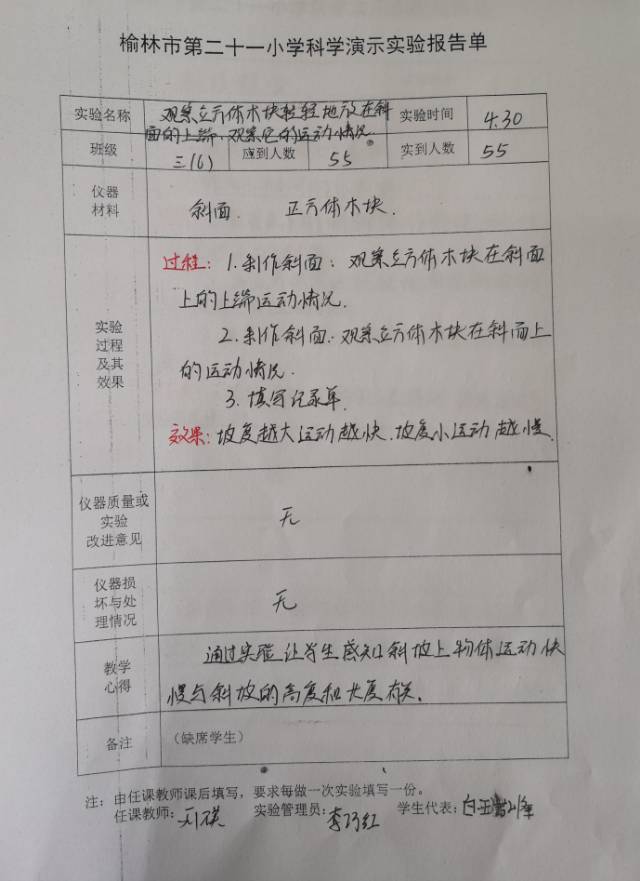 榆林市第二十一小学科学演示实验报告单
实验名称 观察立方体木块轻轻地放在斜面的上端,观察它的运动情况 实验时间 4.30
班级 三(6) 应到人数 55 实到人数 55
仪器
材料
斜面 正方体木块.
实验
过程
及其
效果
过程: 1.制作斜面: 观察立方体木块在斜面
上的上端运动情况.
2.制作斜面:观察立方体木块在斜面上
的运动情况.
3.填写记录单.
效果: 坡度越大运动越快.坡度小运动越慢.
仪器质量或
实验
改进意见
无
仪器损
坏与处
理情况
无
教学
心得
通过实验让学生感知斜坡上物体运动快
慢与斜坡的高度和长度有关.
备注 (缺席学生)
注: 由任课教师课后填写,要求每做一次实验填写一份。
任课教师: 实验管理员:李巧红 学生代表: